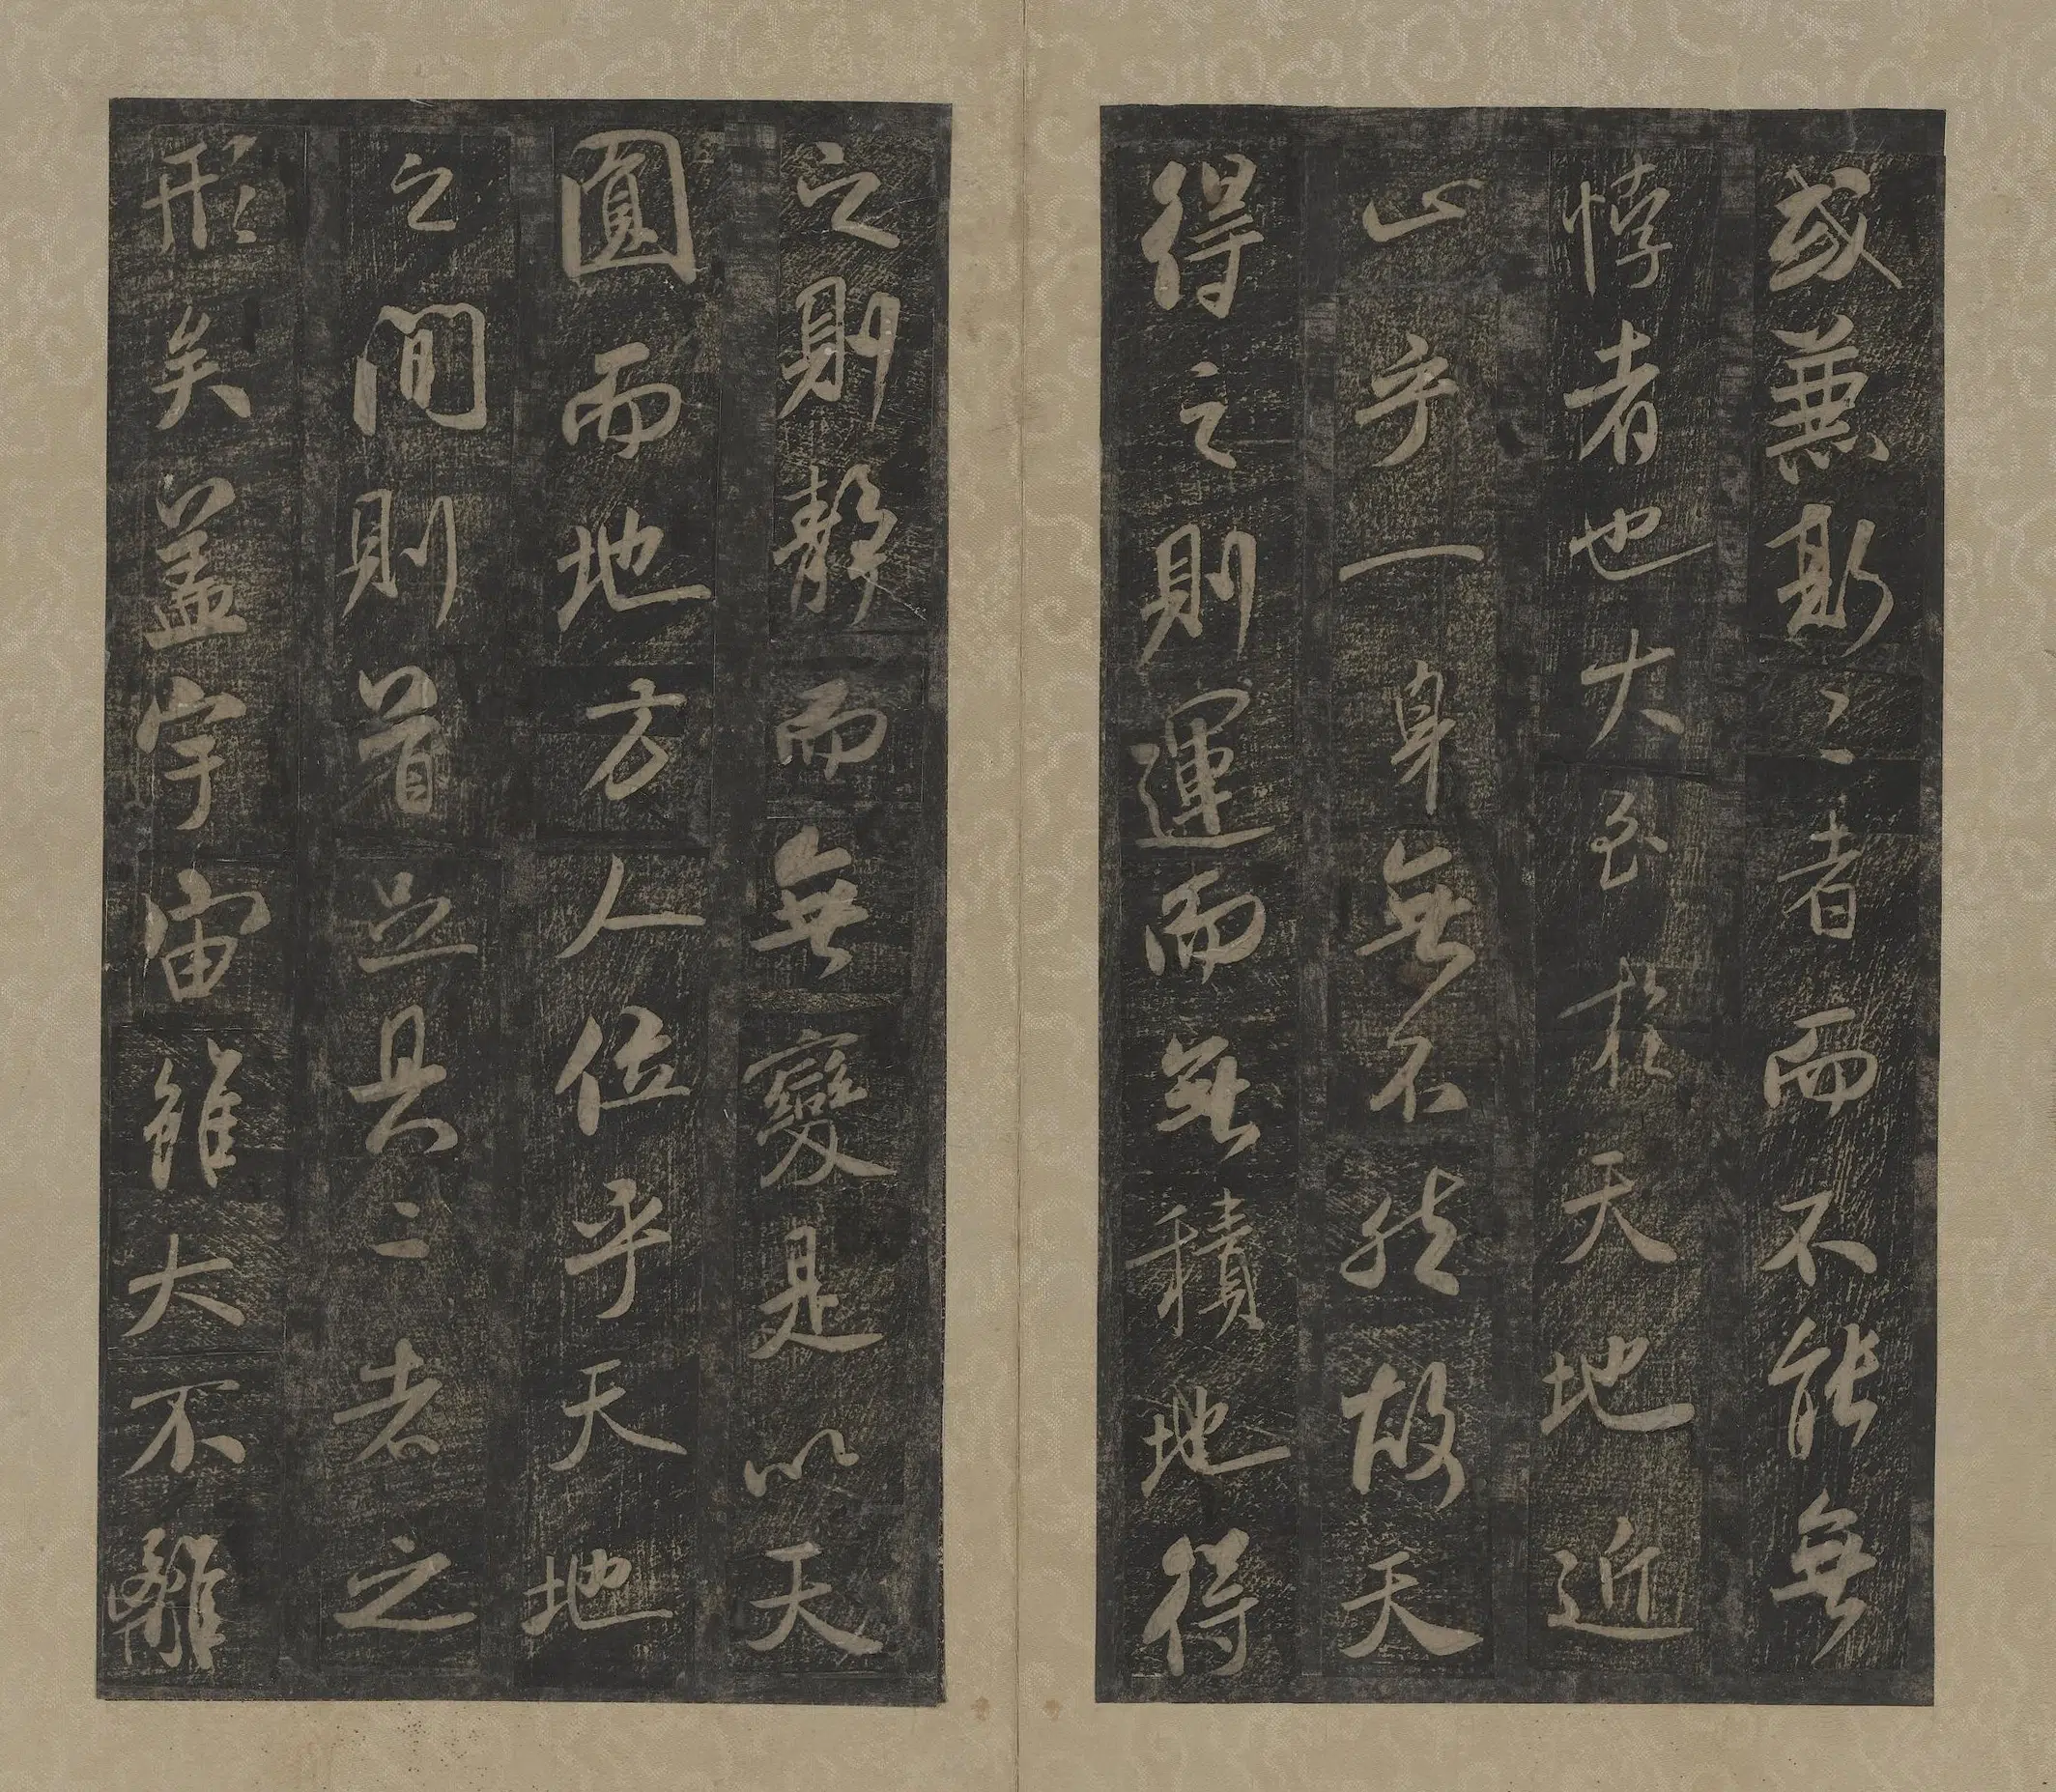 或兼斯二者而不能無
悖者也大至於天地近
止乎一身無不然故天
得之則運而無積地得
之則靜而無變是以天
圓而地方人位乎天地
之間則首足具二者之
形矣蓋宇宙雖大不離